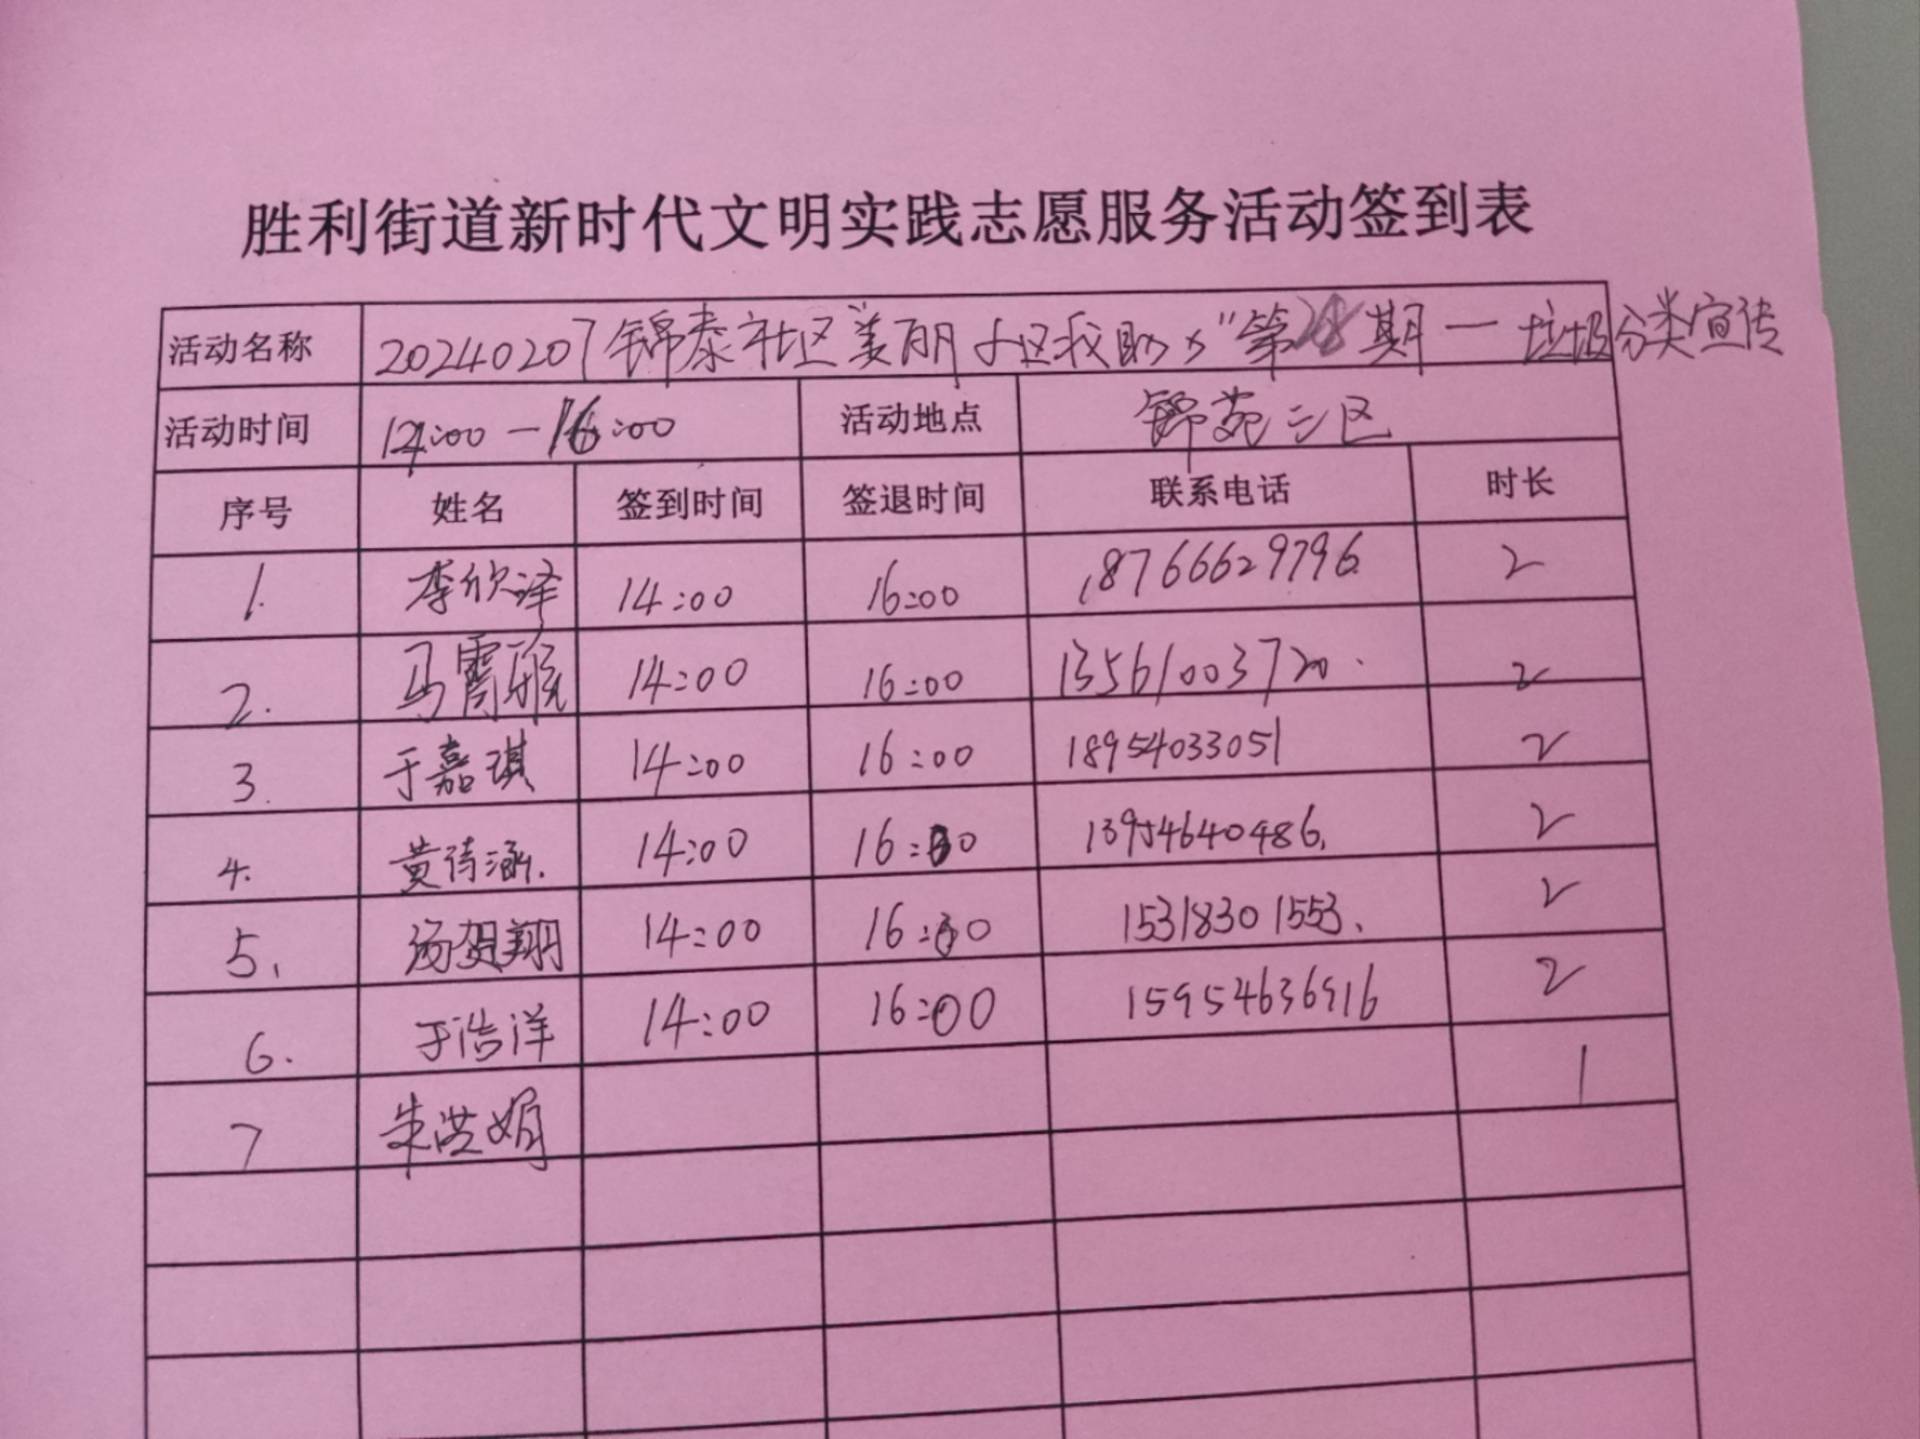 胜利街道新时代文明实践志愿服务活动签到表
活动名称 20240207锦泰社区美丽小区我助力"第28期一垃圾分类宣传
活动时间 14:00-16:00 活动地点 锦苑三区
序号 姓名 签到时间 签退时间 联系电话 时长
1. 李欣泽 14:00 16:00 18766629796 2
2. 马霄航 14:00 16:00 13561003720. 2
3. 于嘉琪 14:00 16:00 18954033051 2
4. 黄诗涵. 14:00 16:00 13954640486. 2
5. 汤贺翔 14:00 16:00 15318301553. 2
6. 于浩洋 14:00 16:00 15954636916 2
7 朱洪娟 1